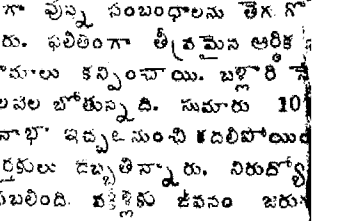 గా వున్న సంబంధాలను తెగ గొ
రు. ఫలితంగా తీవ్రమైన ఆర్థిక
కన్పించాయి. బళ్లారి
బోతున్నది. సుమారు 10
ఇచ్చట నుంచి కదలిపోయిం
ర్తకులు దెబ్బతిన్నారు. నిరుద్యో
బలింది. జీవనం జరు